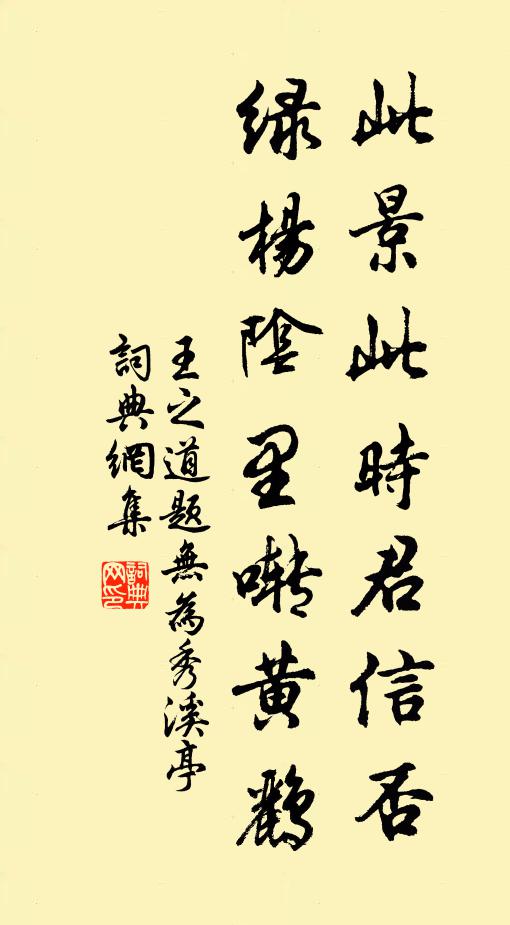 此景此時君信否
綠楊陰里啭黃鸝
王之道題無為秀溪亭
詞典網集
詞典網印